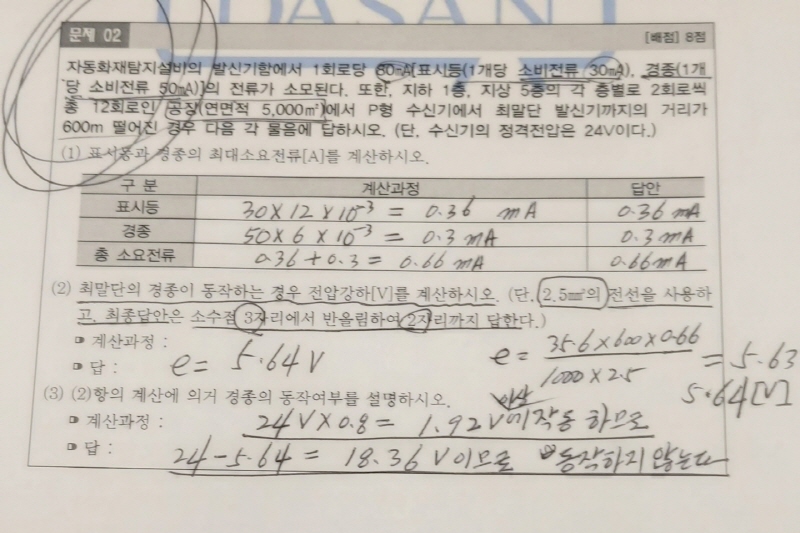 DASAN
문제 02 [배점] 8점
자동화재탐지설비의 발신기함에서 1회로당 80mA[표시등(1개당 소비전류 30mA), 경종(1개
당 소비전류 50mA)]의 전류가 소모된다. 또한, 지하 1층, 지상 5층의 각 층별로 2회로씩
총 12회로인 공장(연면적 5,000㎡)에서 P형 수신기에서 최말단 발신기까지의 거리가
600m 떨어진 경우 다음 각 물음에 답하시오. (단, 수신기의 정격전압은 24V이다.)
(1) 표시등과 경종의 최대소요전류[A]를 계산하시오.
구 분 계산과정 답안
표시등 30×12×10⁻³ = 0.36 mA 0.36 mA
경종 50×6×10⁻³ = 0.3 mA 0.3 mA
총 소요전류 0.36+0.3 = 0.66 mA 0.66 mA
(2) 최말단의 경종이 동작하는 경우 전압강하[V]를 계산하시오. (단, 2.5㎟의 전선을 사용하
고, 최종답안은 소수점 3자리에서 반올림하여 2자리까지 답한다.)
계산과정 : e = 35.6×600×0.66 / 1000×2.5 = 5.63
답 : e = 5.64 V 5.64[V]
(3) (2)항의 계산에 의거 경종의 동작여부를 설명하시오.
이상
계산과정 : 24V×0.8 = 1.92V에 작동 하므로
답 : 24-5.64 = 18.36 V이므로 동작하지 않는다